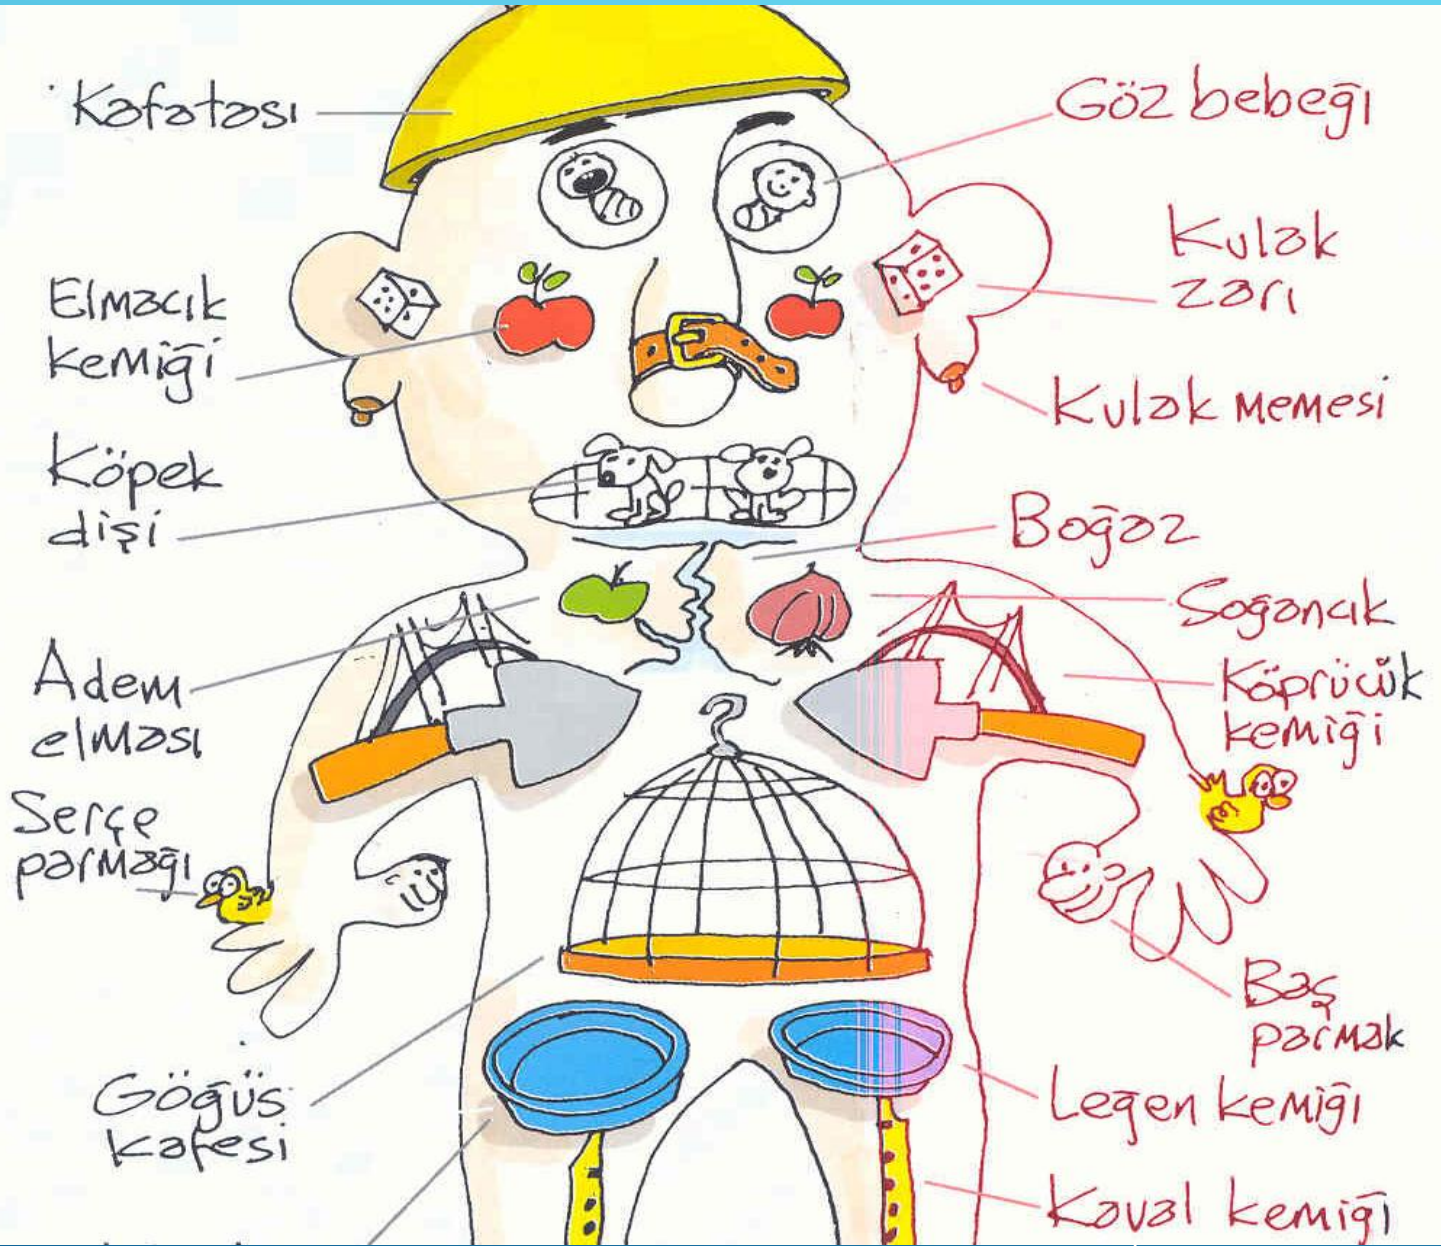 Kafatası
Elmacık
kemiği
Köpek
dişi
Adem
elması
Serçe
parmağı
Göğüs
kafesi
Göz bebeği
Kulak
zarı
Kulak memesi
Boğaz
Soğancık
Köprücük
kemiği
Baş
parmak
Leğen kemiği
Kaval kemiği